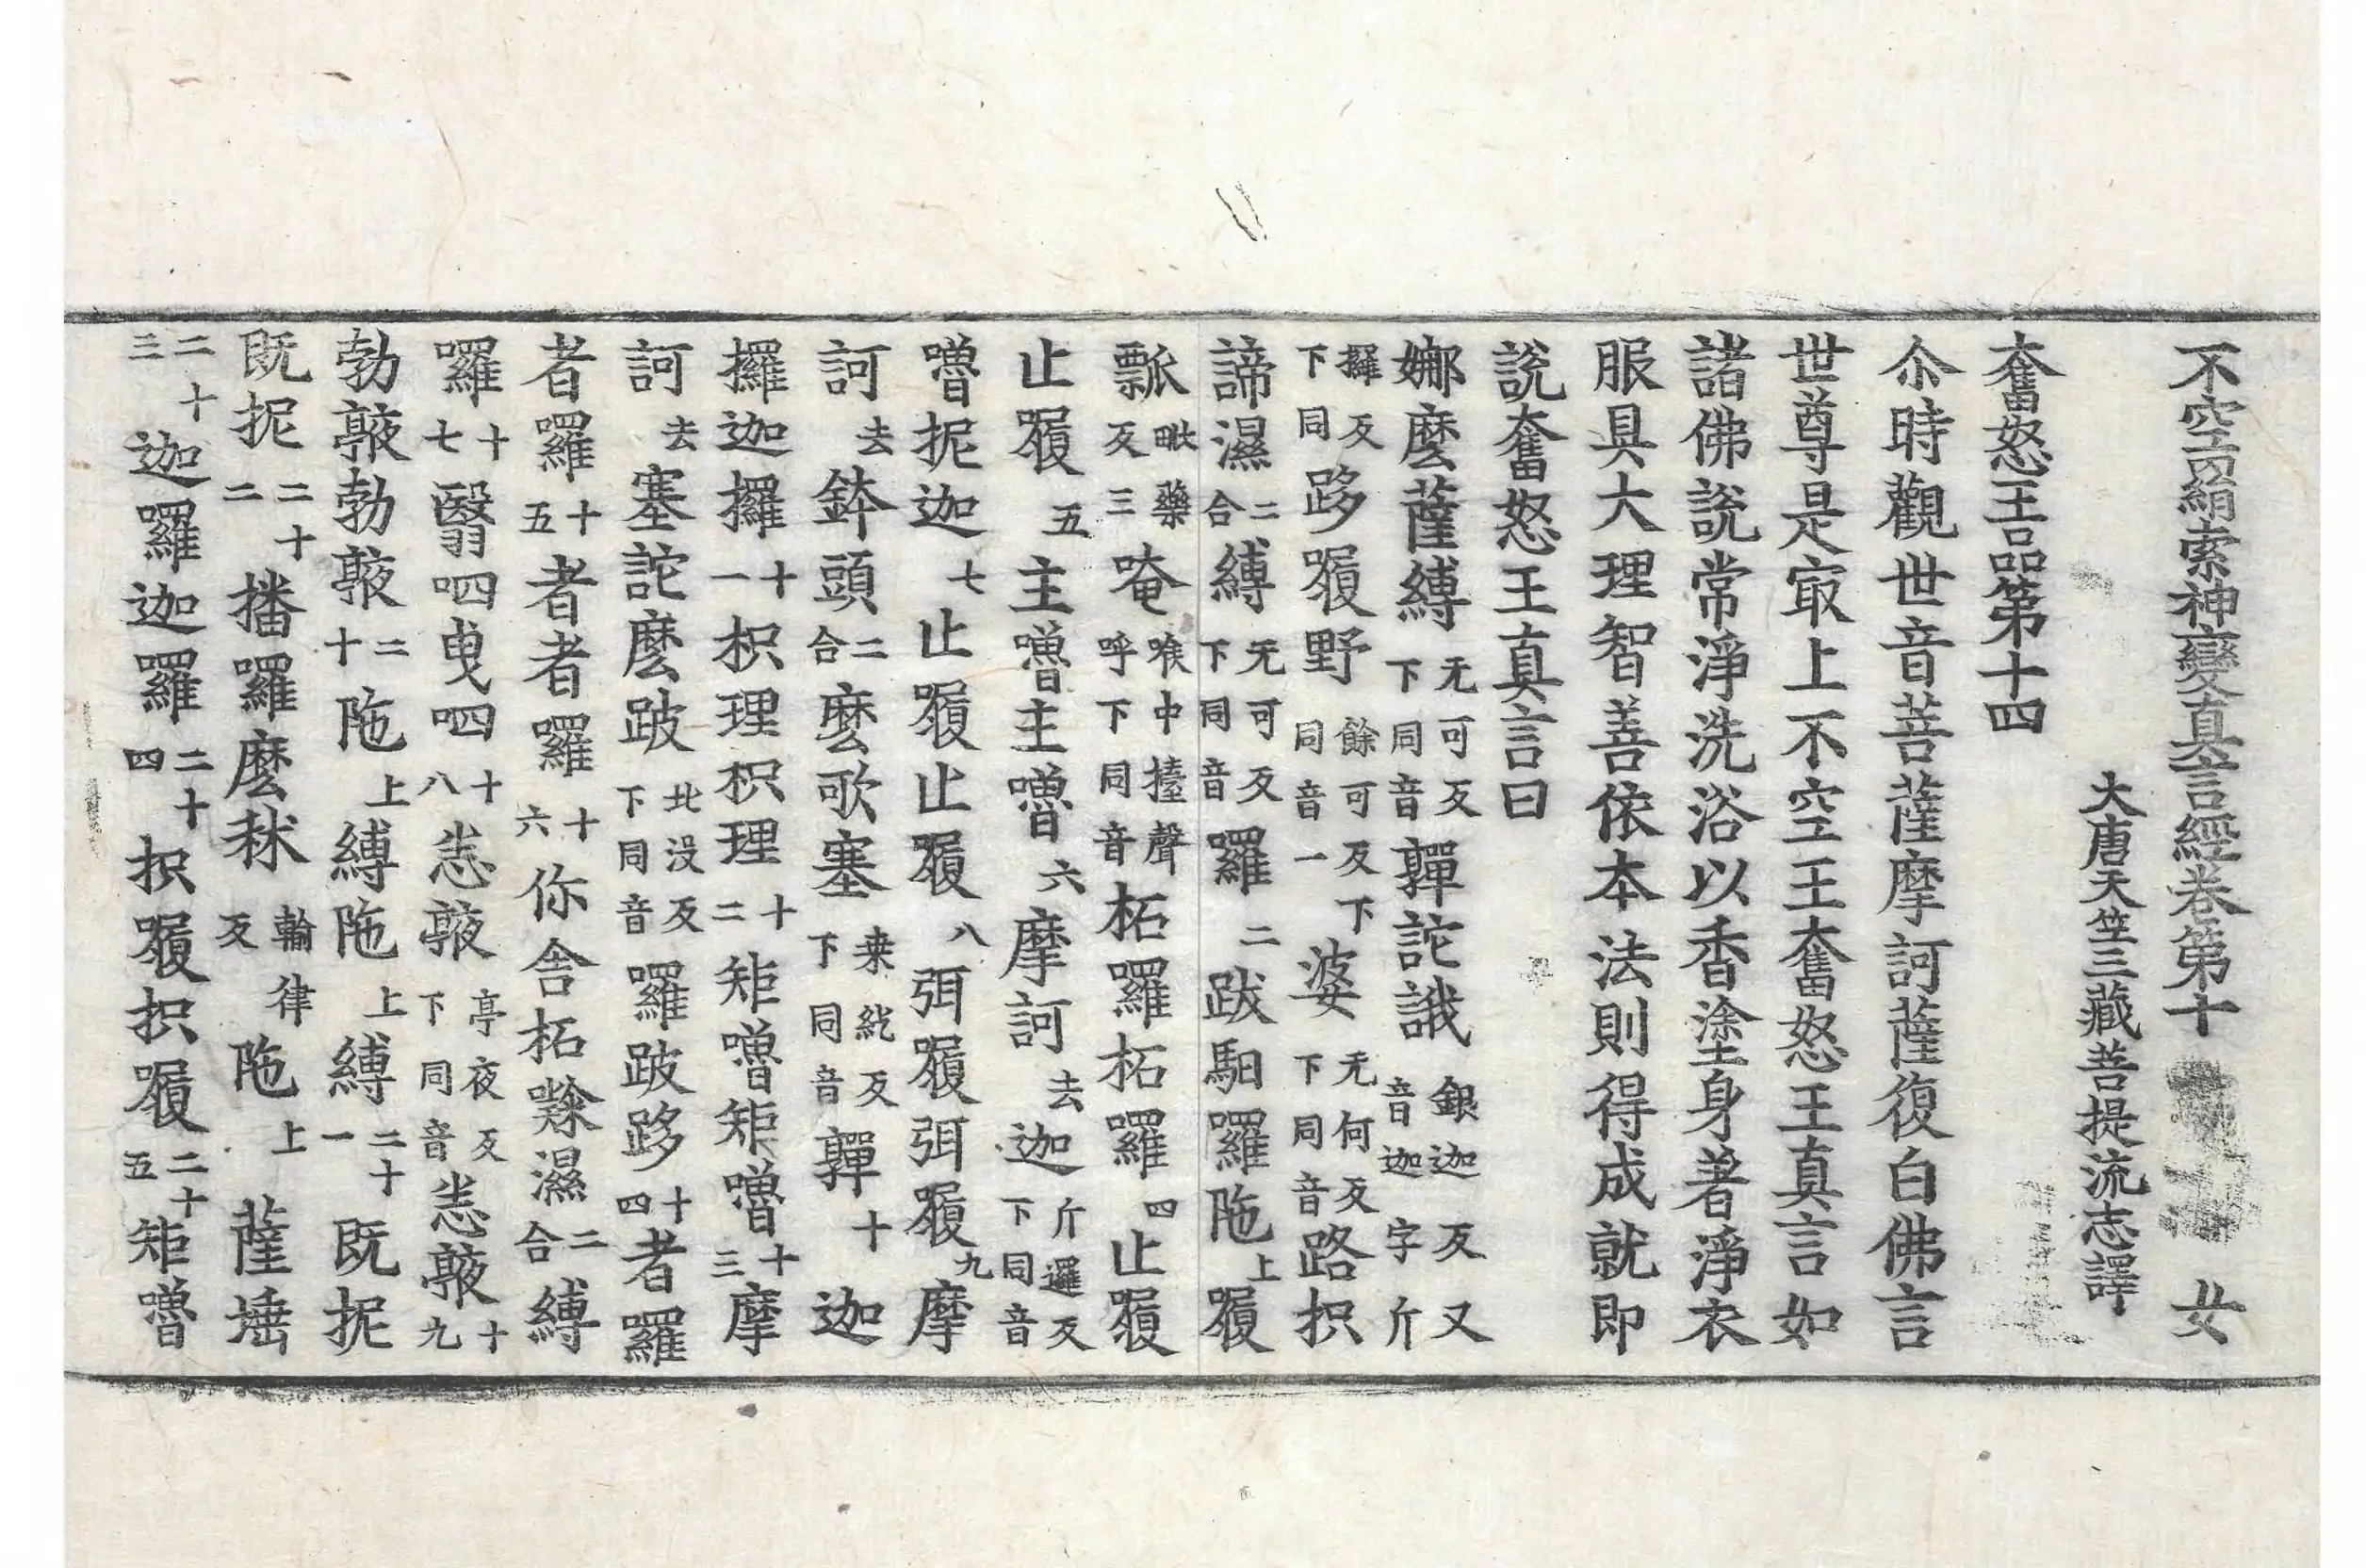 不空羂索神變真言經卷第十 女
大唐天竺三藏菩提流志譯
奮怒王品第十四
尒時觀世音菩薩摩訶薩復白佛言
世尊是㝡上不空王奮怒王真言如
諸佛說常淨洗浴以香塗身著淨衣
服具大理智善依本法則得成就即
說奮怒王真言曰
娜麼薩縛无可反下同音嚲詑誐銀迦反又音迦字斤
攞反下同跢𡂰野餘可反下同音一婆无何反下同音路枳
諦濕二合縛无可反下同音囉二跋馹囉陁上𡂰
瓢毗藥反三唵喉中擡聲呼下同音柘囉柘囉四止𡂰
止𡂰五主嚕主嚕六摩訶去迦斤邏反下同音
嚕抳迦七止𡂰止𡂰八弭𡂰弭𡂰九摩
訶去鉢頭二合麼歌塞桒紇反下同音嚲十迦
攞迦攞十一枳理枳理十二矩嚕矩嚕十三摩
訶去塞詑麼跛北没反下同音囉跛跢十四者囉
者囉十五者者囉十六你舍柘㗚濕二合縛
囉十七翳呬曳呬十八亭夜反下同音十九
勃勃二十陁上縛陁上縛二十一既抳
既抳二十二播囉麼秫輸律反陁上薩埵
二十三迦囉迦囉二十四枳𡂰枳𡂰二十五矩嚕